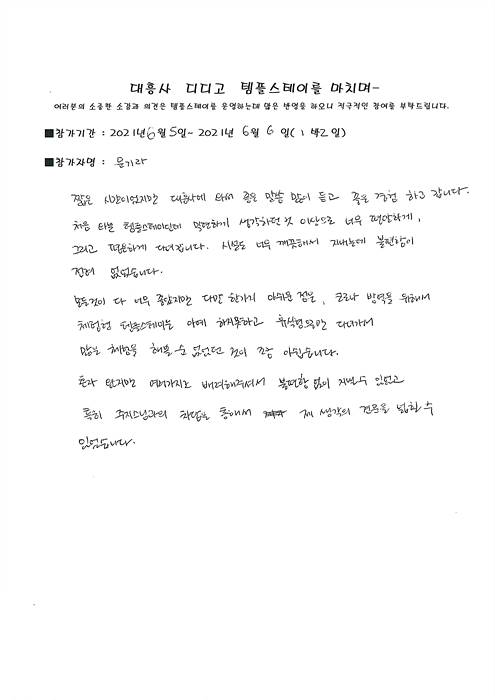 대흥사 디디고 템플스테이를 마치며-
여러분의 소중한 소감과 의견은 템플스테이를 운영하는데 많은 반영을 하오니 적극적인 참여를 부탁드립니다.
■참가기간 : 2021년 6월 5일~ 2021년 6월 6일( 1박2일)
■참가자명 : 문기라
짧은 시간이었지만 대흥사에 와서 좋은 말씀 많이 듣고 좋은 경험 하고 갑니다.
처음 타본 템플스테이인데 막연하게 생각하던 것 이상으로 너무 편안하게,
그리고 평온하게 다녀갑니다. 시설도 너무 깨끗해서 지내는데 불편함이
전혀 없었습니다.
모든것이 다 너무 좋았지만 다만 한가지 아쉬운 점은, 코로나 방역을 위해서
체험형 템플스테이는 아예 하지못하고 휴식형으로만 다녀가서
많은 체험을 해볼 수 없었던 것이 조금 아쉽습니다.
혼자 왔지만 여러가지로 배려해주셔서 불편함 없이 지낼수 있었고
특히 주지스님과의 차담을 통해서 제 생각의 견문을 넓힐 수
있었습니다.